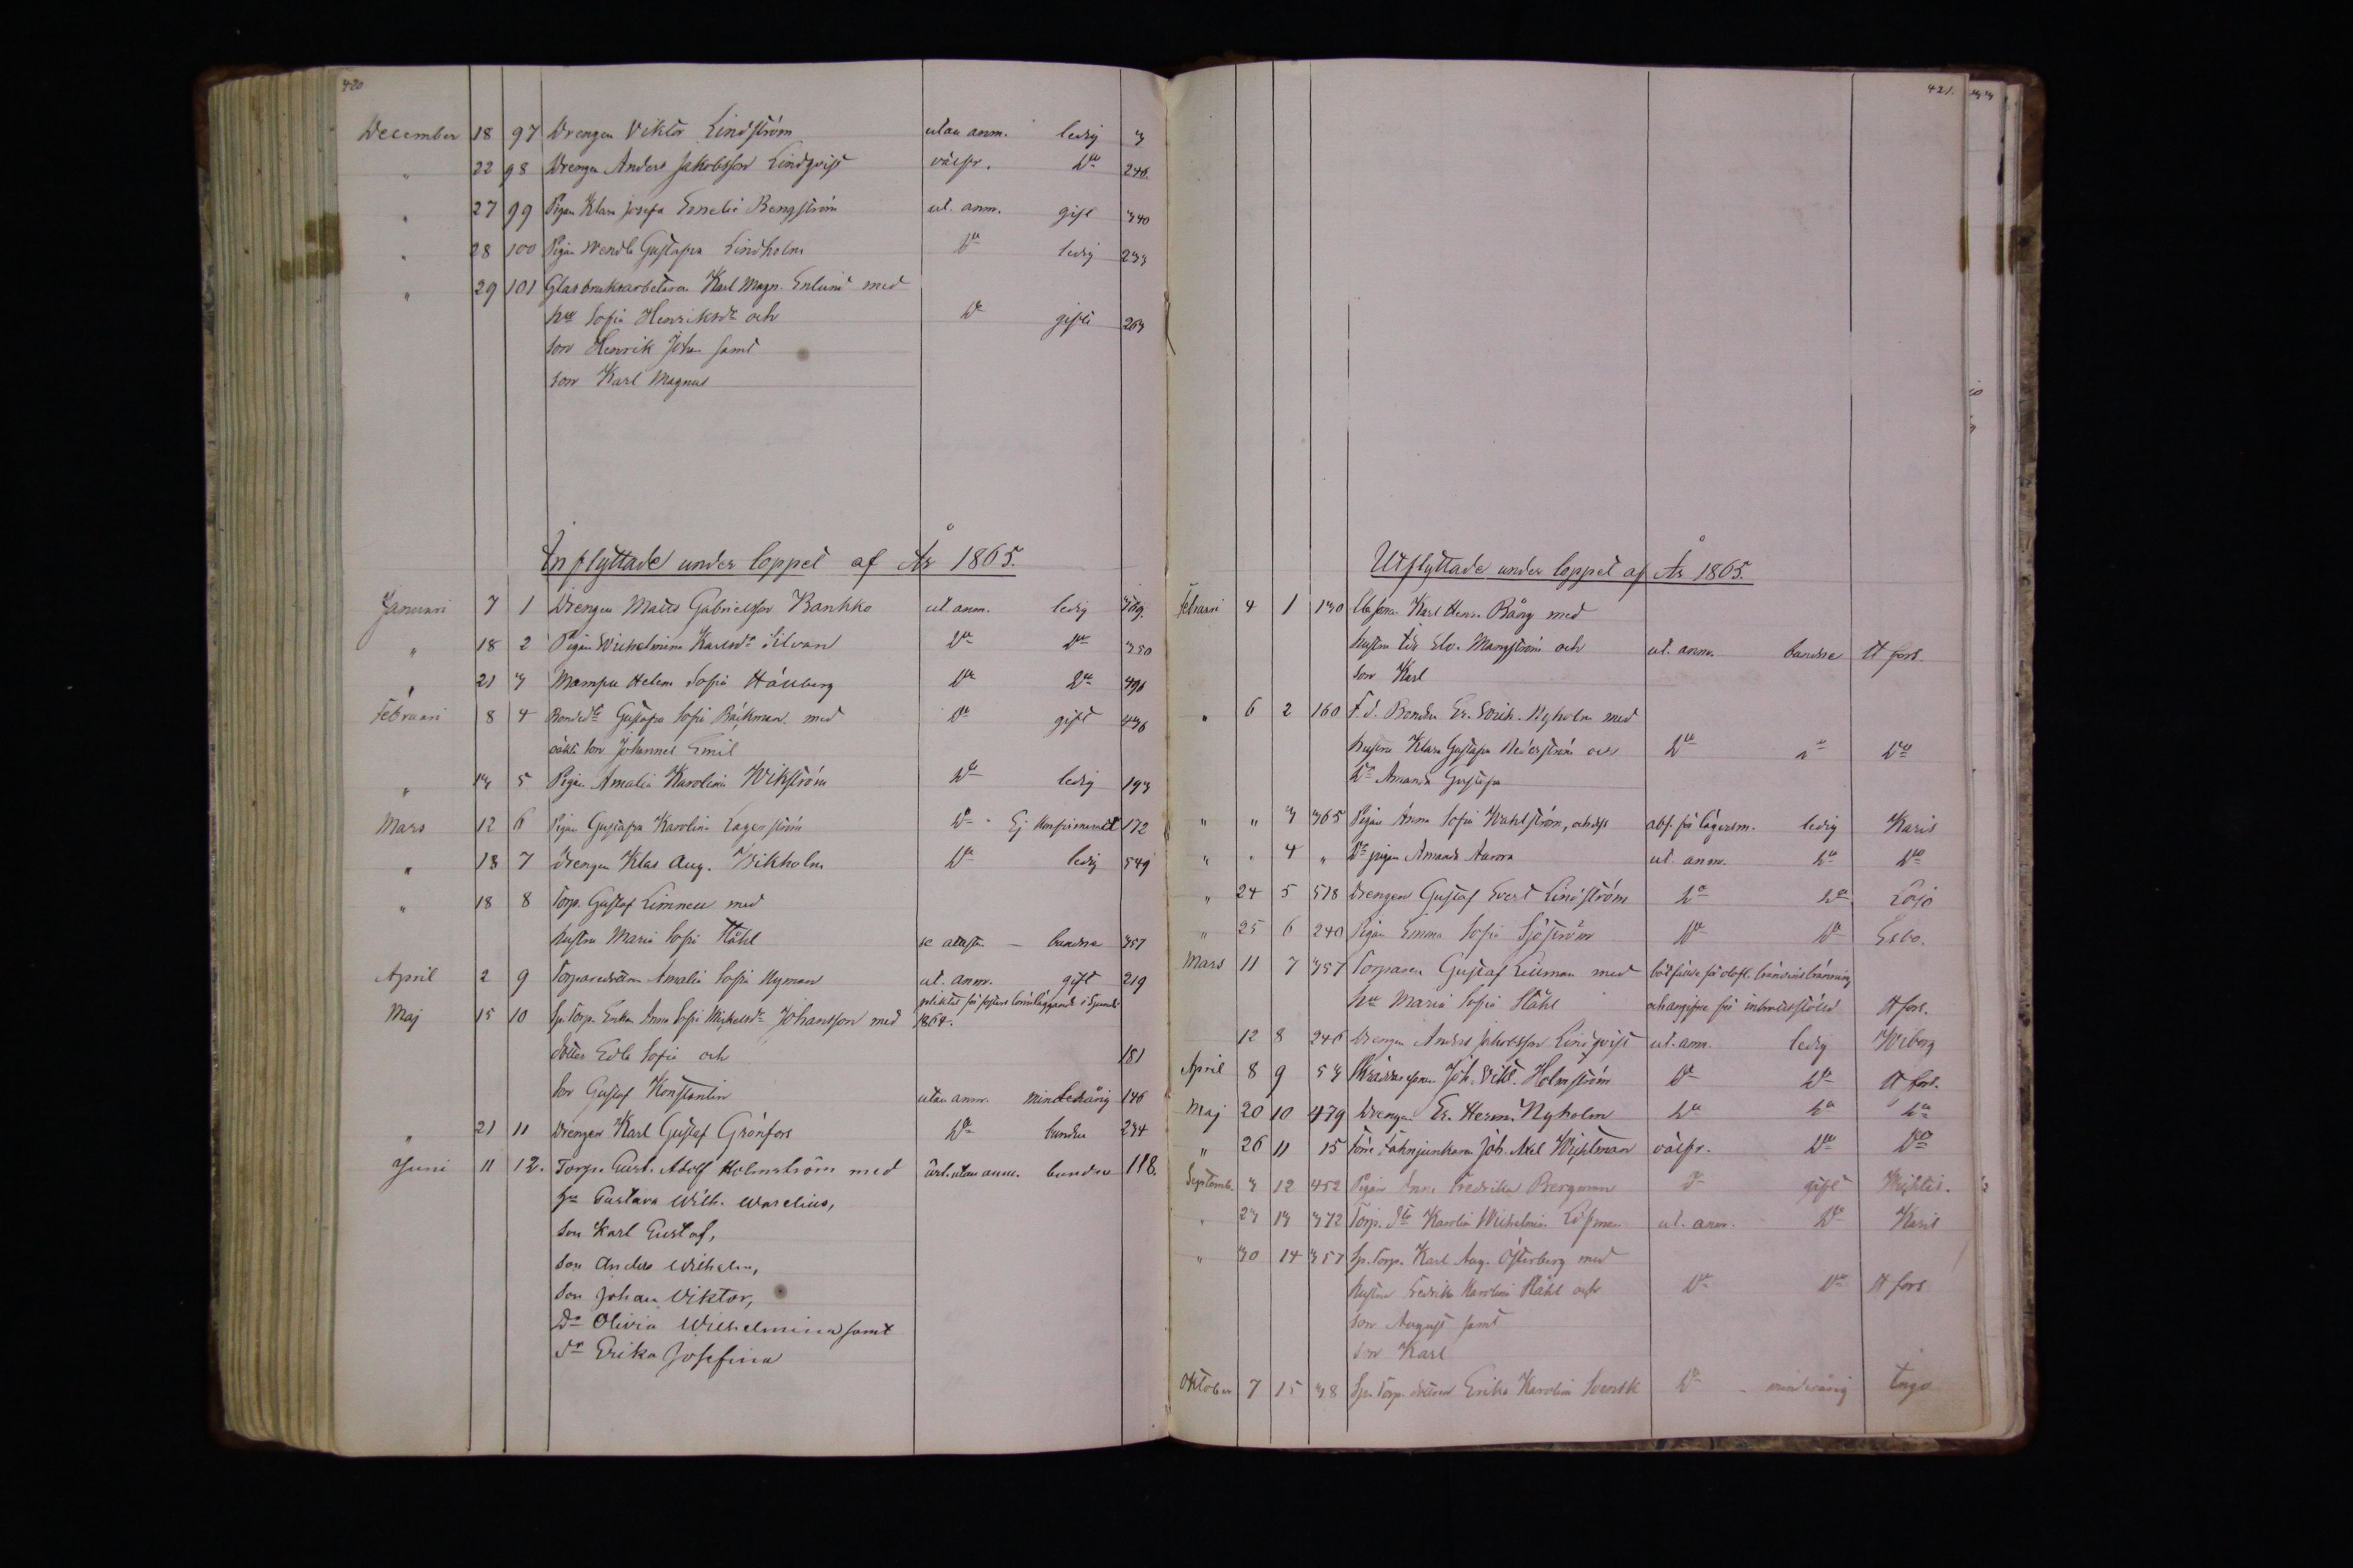 420
December 18 97 Drengen Viktor Lindström utan anm. ledig 3
" 22 98 Drengen Anders Jakobsson Lindqvist välfr. Do 246.
" 27 99 Pigan Klara Josefa Emelie Bengström ut. anm. gift 340
" 28 100 Pigan Wendla Gustafva Lindholm Do ledig 233
" 29 101 Glasbruksarbetaren Karl Magn. Enlund med
hu Sofia Henriksdr och Do gifte 263
son Henrik Joha samt
son Karl Magnus
Inflyttade under loppet af År 1865.
Januari 7 1 Drengen Matts Gabrielsson Bankko ut anm. ledig
" 18 2 Pigan Wilhelmina Karlsdr Silvan Do Do 350
" 21 3 Mampu Helena Sofia Hållberg Do Do 496
Februari 8 4 Gustafva Sofia Bäckman med Do gift 436
oäkta son Johannes Emil
" 13 5 Pigan Amalia Karolina Wikström Do ledig 193
Mars 12 6 Pigan Gustafva Karolina Lagerström Do Ej konfirmerad 172
" 18 7 Drengen Klas Aug. Wikholm Do ledig 549
" 18 8 Torp. Gustaf Limnell med
hustru Maria Sofia Ståhl se attesten — bundne 357
April 2 9 Amalia Sofia Nyman ut. anm. gift 219
Maj 15 10 Sp. Torp. Enkan Anna Sofia Mickelsdr Johansson med 1864.
dotter Edla Sofia och 181
son Gustaf Konstantin utan anm. minderårig 146
" 21 11 Drengen Karl Gustaf Grönfors Do bunden 234
Juni 11 12. Torp. Gust. Adolf Holmström med utan anm. bundne 118.
hu Gustava Wilh. Warelius,
Son Karl Gustaf,
Son Anders Wilhelm,
Son Johan Viktor,
Dr Olivia Wilhelmina samt
dr Erika Josefina
421.
Utflyttade under loppet af År 1865.
Februari 4 1 130 Karl Henr. Bång med
hustru Mangström och ut. anm. bundne H fors.
son Karl
" 6 2 160 F.d. Bonden Er. Wilh. Nyholm med
hustru Klara Gustafva Nederström och Do Do Do
Dr Amanda Gustafva
" " 3 365 Pigan Anna Sofia Wahlström, och dess abs. för lägersm. ledig Karis
" " 4 " Dr pigan Amanda Aurora ut. anm. Do Do
" 24 5 518 Drengen Gustaf Evert Lindström Do Do Lojo
" 25 6 240 Pigan Emma Sofia Sjöström Do Do Esbo.
Mars 11 7 357 Torparen Gustaf Limnell med bötfäld för olofl. bränvinsbränning
hu Maria Sofia Ståhl och angifven för inbrottsstöld H fors.
12 8 246 Drengen Anders Jakobsson Lindqvist ut. anm. ledig Wiborg
April 8 9 53 Joh. Vikt. Holmström Do Do H fors.
Maj 20 10 479 Drengen Er. Herm. Nyholm Do Do Do
" 26 11 15 Förre Fahnjunkaren Joh. Axel Wichtman välfr. Do Do
Septemb. 3 12 452 Pigan Anna Fredrika Bergman Do gift Wichtis.
" 23 13 372 Torp. dtr Karolina Wilhelmina Löfman ut. anm. Do Karis
" 30 14 357 Sp. Torp. Karl Aug. Österberg med
hustru Fredrika Karolina Ståhl och Do Do H fors
son August samt
son Karl
Oktober 7 15 38 Sp. Torp. dottren Erika Karolina Svensk Do minderårig Ingo